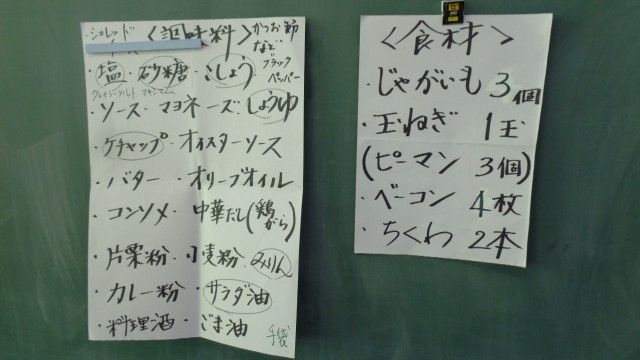 ・シュレッド
〈調味料〉
かつお節
など
・塩・砂糖・こしょう
ブラック
ペッパー
クレイジーソルト マキシマム
・ソース・マヨネーズ・しょうゆ
・ケチャップ・オイスターソース
・バター・オリーブオイル
・コンソメ・中華だし(鶏がら)
・片栗粉・小麦粉・みりん
・カレー粉・サラダ油
・料理酒・ごま油
手袋
〈食材〉
・じゃがいも 3個
・玉ねぎ 1玉
(ピーマン 3個)
・ベーコン 4枚
・ちくわ 2本